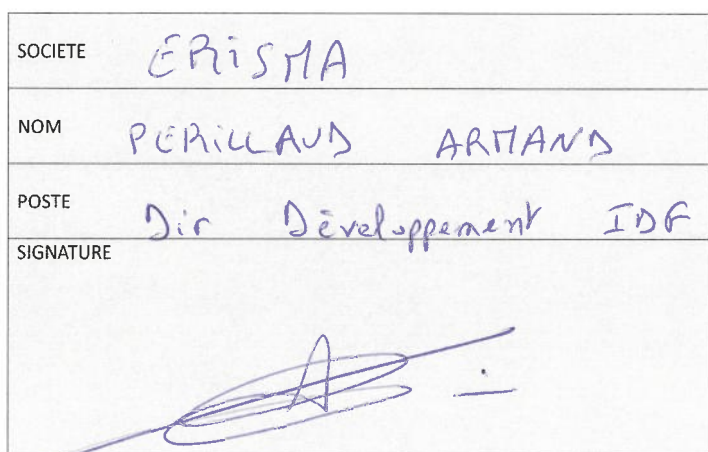 SOCIETE ERISMA
NOM PERILLAUD ARMAND
POSTE Dir Développement IDF
SIGNATURE